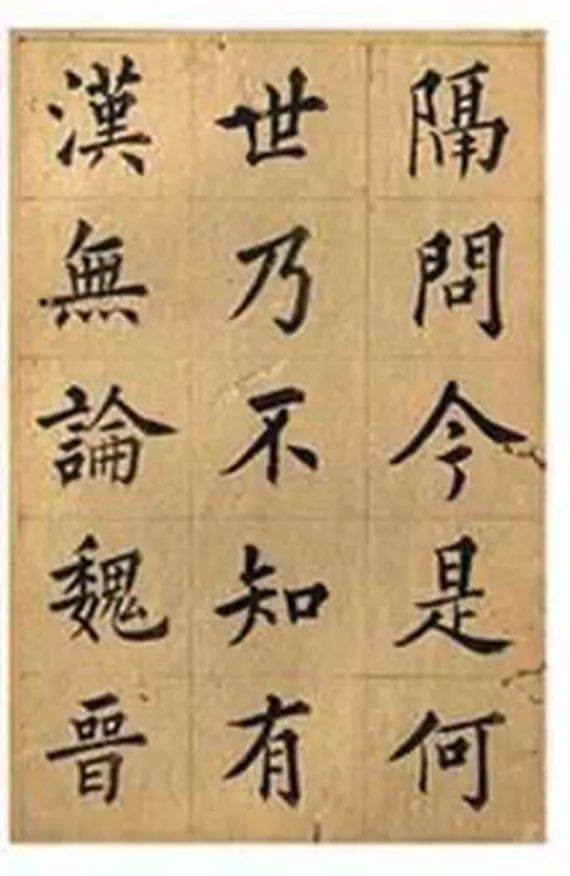 隔問今是何
世乃不知有
漢無論魏晉